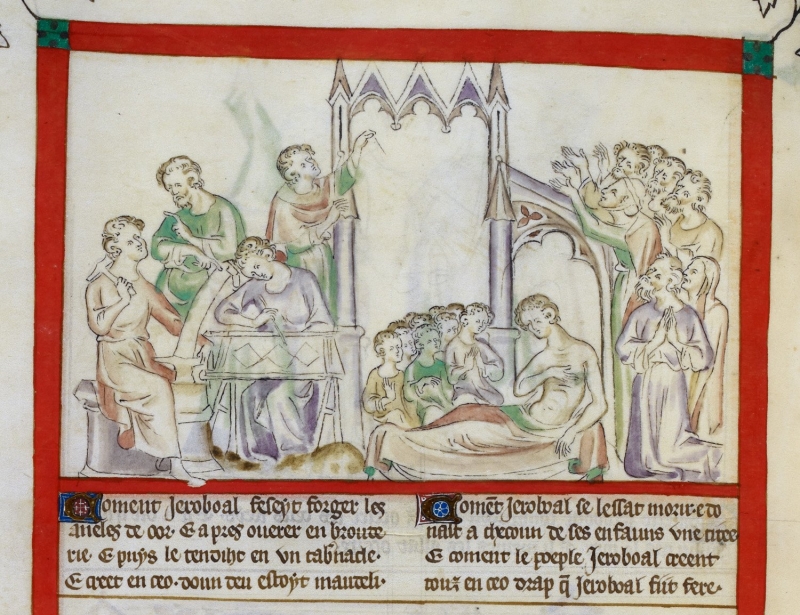 Coment Jeroboal feseyt forger les
aneles de oor. E apres ouerer en broude
rie. E puys le tendiht en vn tabnacle.
E creet en ceo. doun deu estoyt mautel.
Comēt Jeroboal se lessat morir. e do
nait a checoun de ses enfauns vne
E coment le poeple Jeroboal creent
touz en ceo drap q̄ Jeroboal fiit fere.